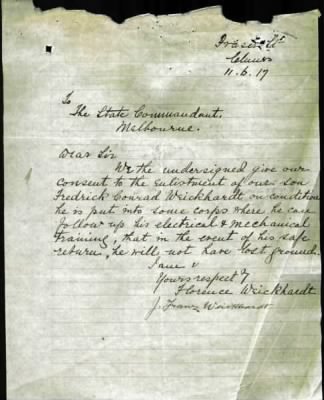 Fraser St
Clunes
11.6.17
To
The State Commandant.
Melbourne.
Dear Sir
We the undersigned give our
consent to the enlistment of our Son
Fredrick Conrad Weickhardt on condition
he is put into some corps where he can
follow up his electrical & mechanical
training, that in the event of his safe
return, he will not have lost ground.
Yours respectfy
Florence Weickhardt
J. Franz Weickhardt